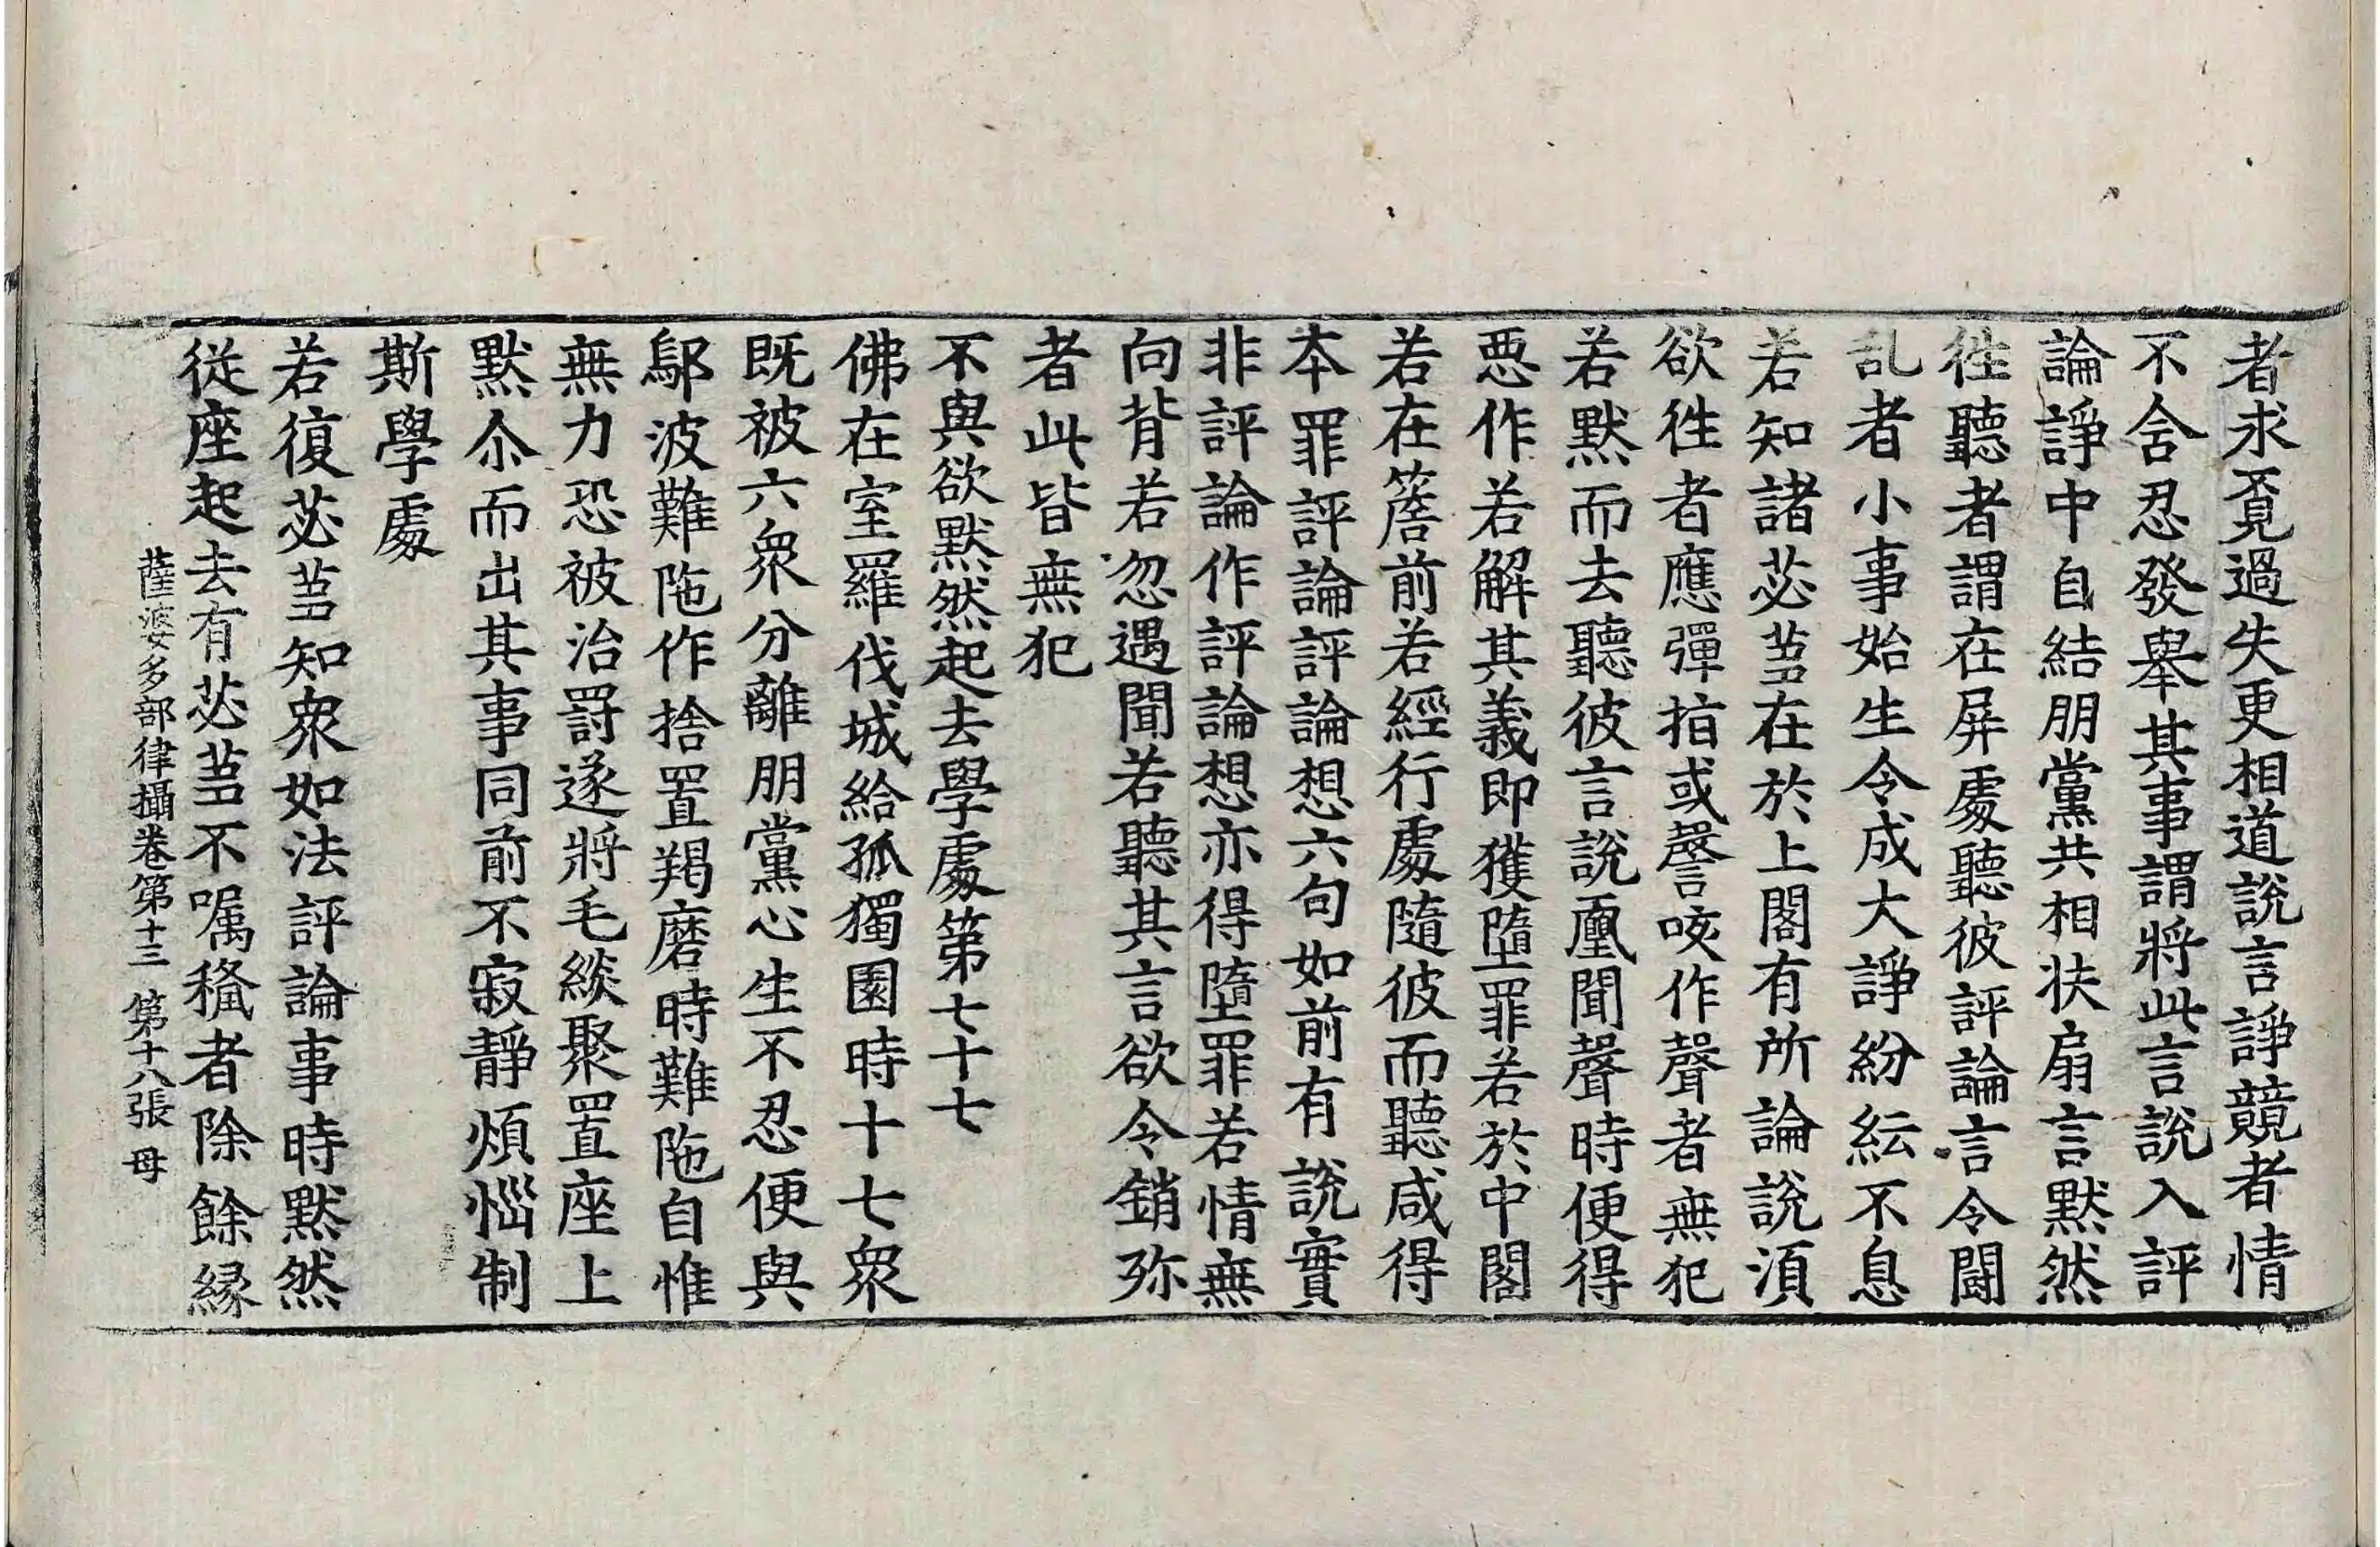 者求覔過失更相道說言諍競者情
不舍忍發舉其事謂將此言說入評
論諍中自結朋黨共相扶扇言默然
徃聽者謂在屏處聽彼評論言令鬪
乱者小事始生令成大諍紛紜不息
若知諸苾芻在於上閣有所論說湏
欲徃者應彈指或謦咳作聲者無犯
若默而去聽彼言說凰聞聲時便得
惡作若解其義即獲墮罪若於中閣
若在簷前若經行處隨彼而聽咸得
本罪評論評論想六句如前有說實
非評論作評論想亦得墮罪若情無
向背若忽遇聞若聽其言欲令銷弥
者此皆無犯
不與欲默然起去學處第七十七
佛在室羅伐城給孤獨園時十七眾
既被六眾分離朋黨心生不忍便與
鄔波難陁作捨置羯磨時難陁自惟
無力恐被治罸遂將毛緂聚置座上
默尒而出其事同前不寂靜煩惱制
斯學處
若復苾芻知眾如法評論事時默然
從座起去有苾芻不囑者除餘緣
薩婆多部律攝卷第十三 第十八張 母